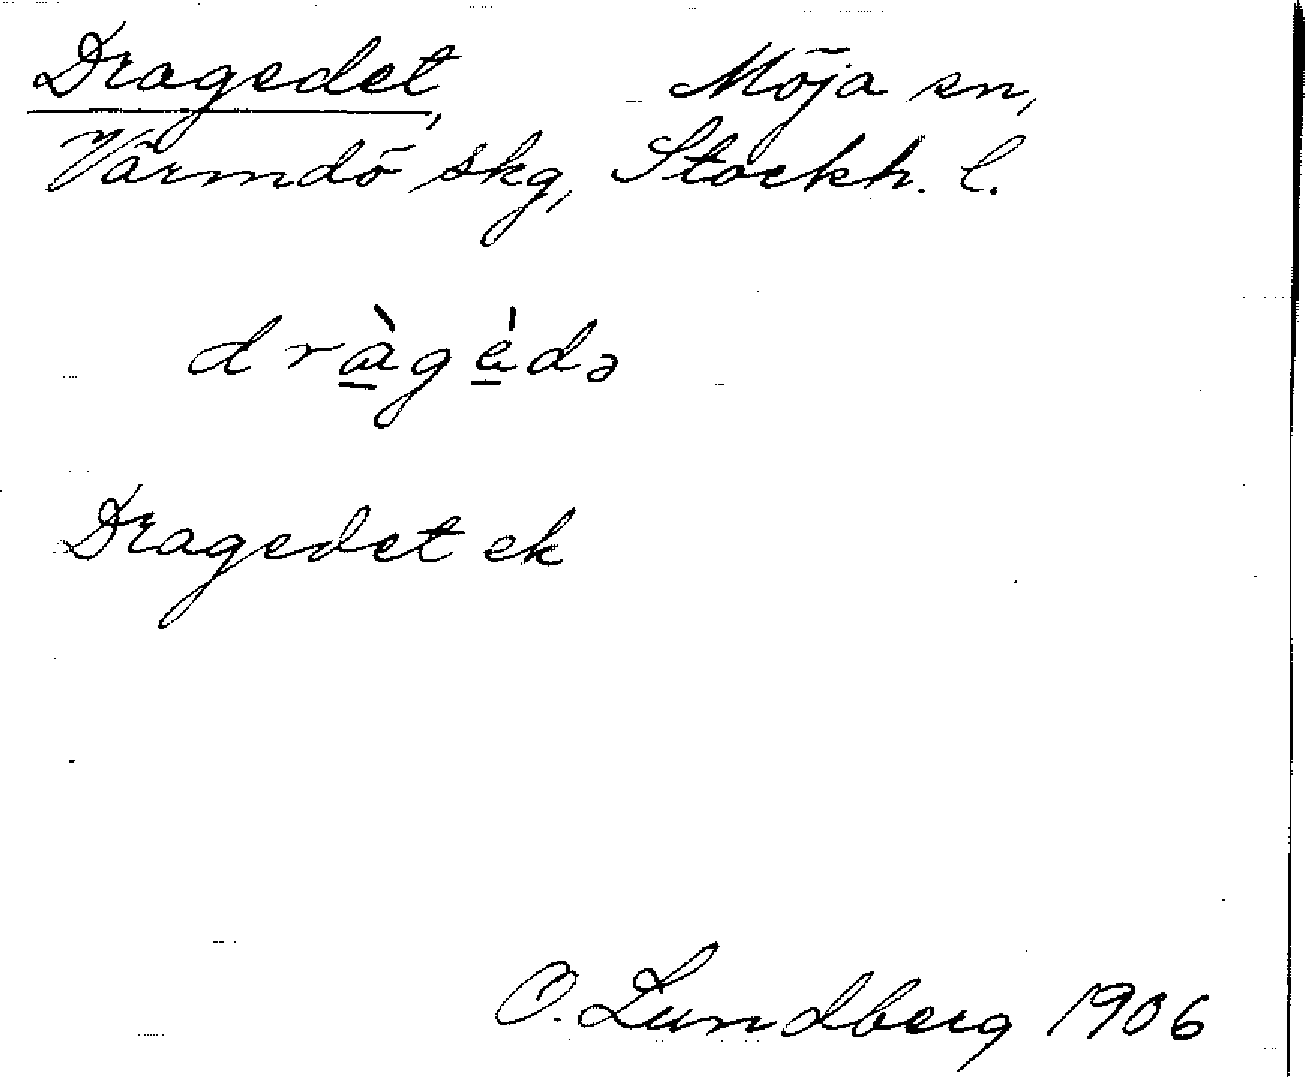 Dragedet, Möja sn,
Värmdö skg, Stockh. l.
drà̱ge̱̍də
Dragedet ek
O. Lundberg 1906